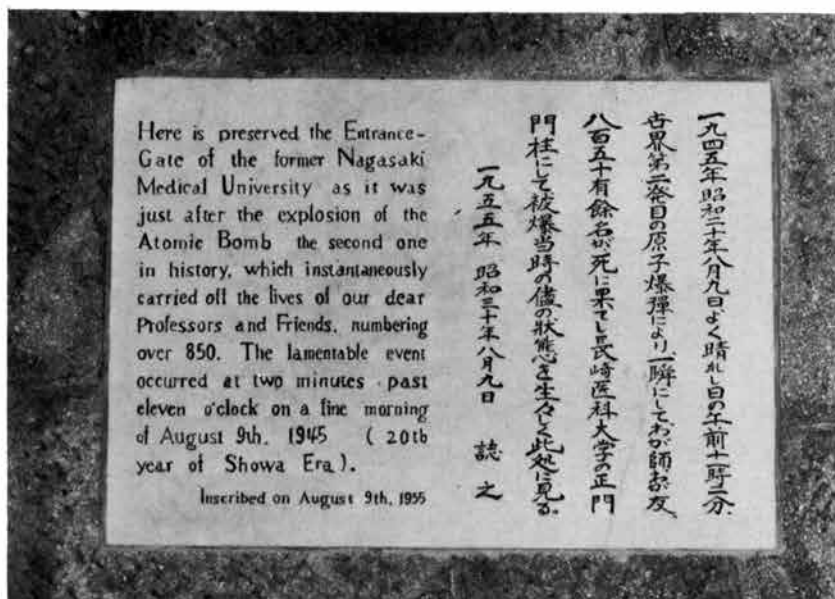 Here is preserved the Entrance-
Gate of the former Nagasaki
Medical University as it was
just after the explosion of the
Atomic Bomb the second one
in history, which instantaneously
carried off the lives of our dear
Professors and Friends, numbering
over 850. The lamentable event
occurred at two minutes past
eleven o'clock on a fine morning
of August 9th, 1945 ( 20th
year of Showa Era ).
Inscribed on August 9th, 1955
一九四五年昭和二十年八月九日よく晴れし日の午前十一時二分、
世界第二発目の原子爆彈により、一瞬にしてわが師わが友、
八百五十有餘名が死に果てし長崎医科大学の正門
門柱にして被爆当時の儘の狀態を生々しく此処に見る。
一九五五年 昭和三十年八月九日 誌之